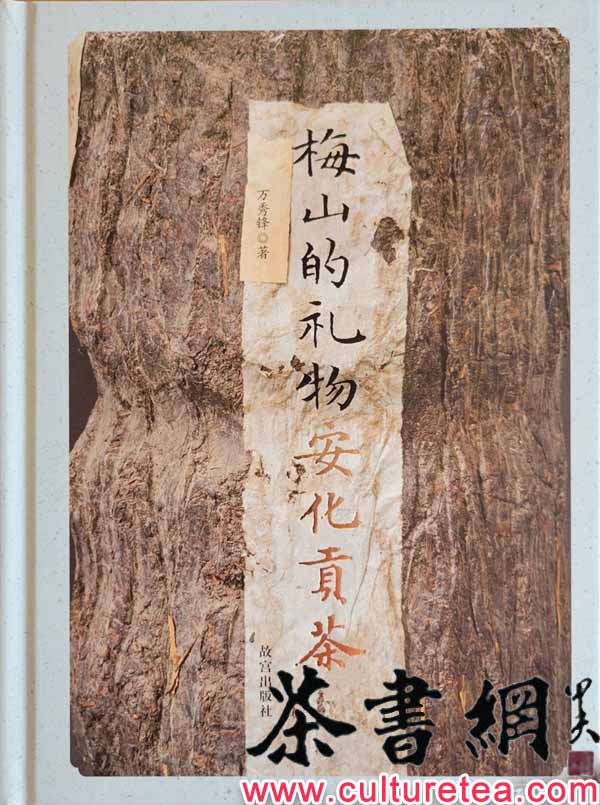 梅山的礼物
安化貢茶
万秀锋◎著
故宫出版社
茶書網
www.culturetea.com